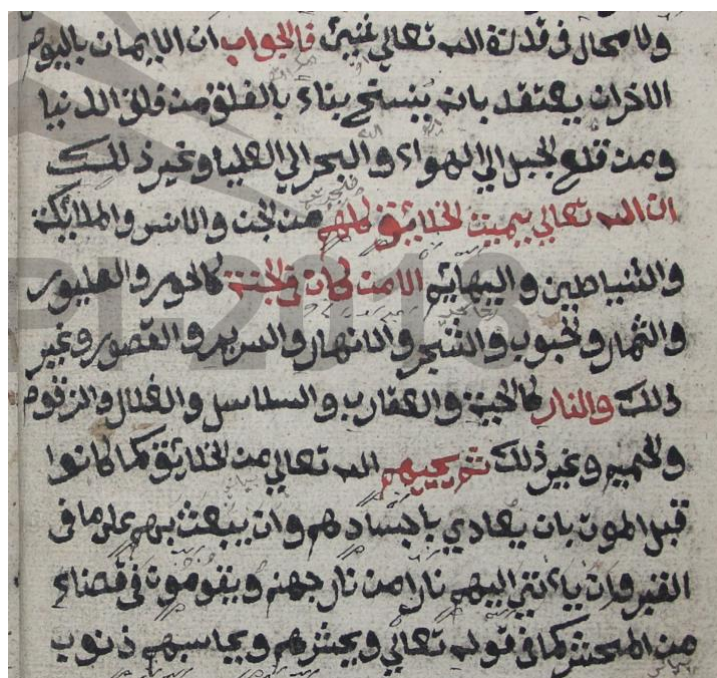 ولا محال فى قدرة الله تعالى شيئ فالجواب ان الايمان باليوم
الاخران يعتقد بانه ينسخ بناء بالفلق من فلق الدنيا
ومن قلع لجبل الى الهواء والبحر الى العليا وغير ذلك
ان الله تعالى يميت الخلايق كلهم من الجن والانس والملايكة
والشياطين والبهايم الا من كان فى الجنة كالحور والطيور
والثمار والحبوب والشجر والانهار والسرير والقصور وغير
ذلك والنار كالحية والعقارب والسلاسل والغلال والزقوم
والحميم وغير ذلك ثم يحييهم الله تعالى من الخلايق كما كانوا
قبل الموت بان يعادى باجسادهم وان يبعث بهم على ما فى
القبر وان ياتى اليهم نارا من نار جهنم ويقوموا فى قضاء
من المحشر كما فى قوله تعالى ويحشرهم ويحاسبهم ذنوب
PI-2018